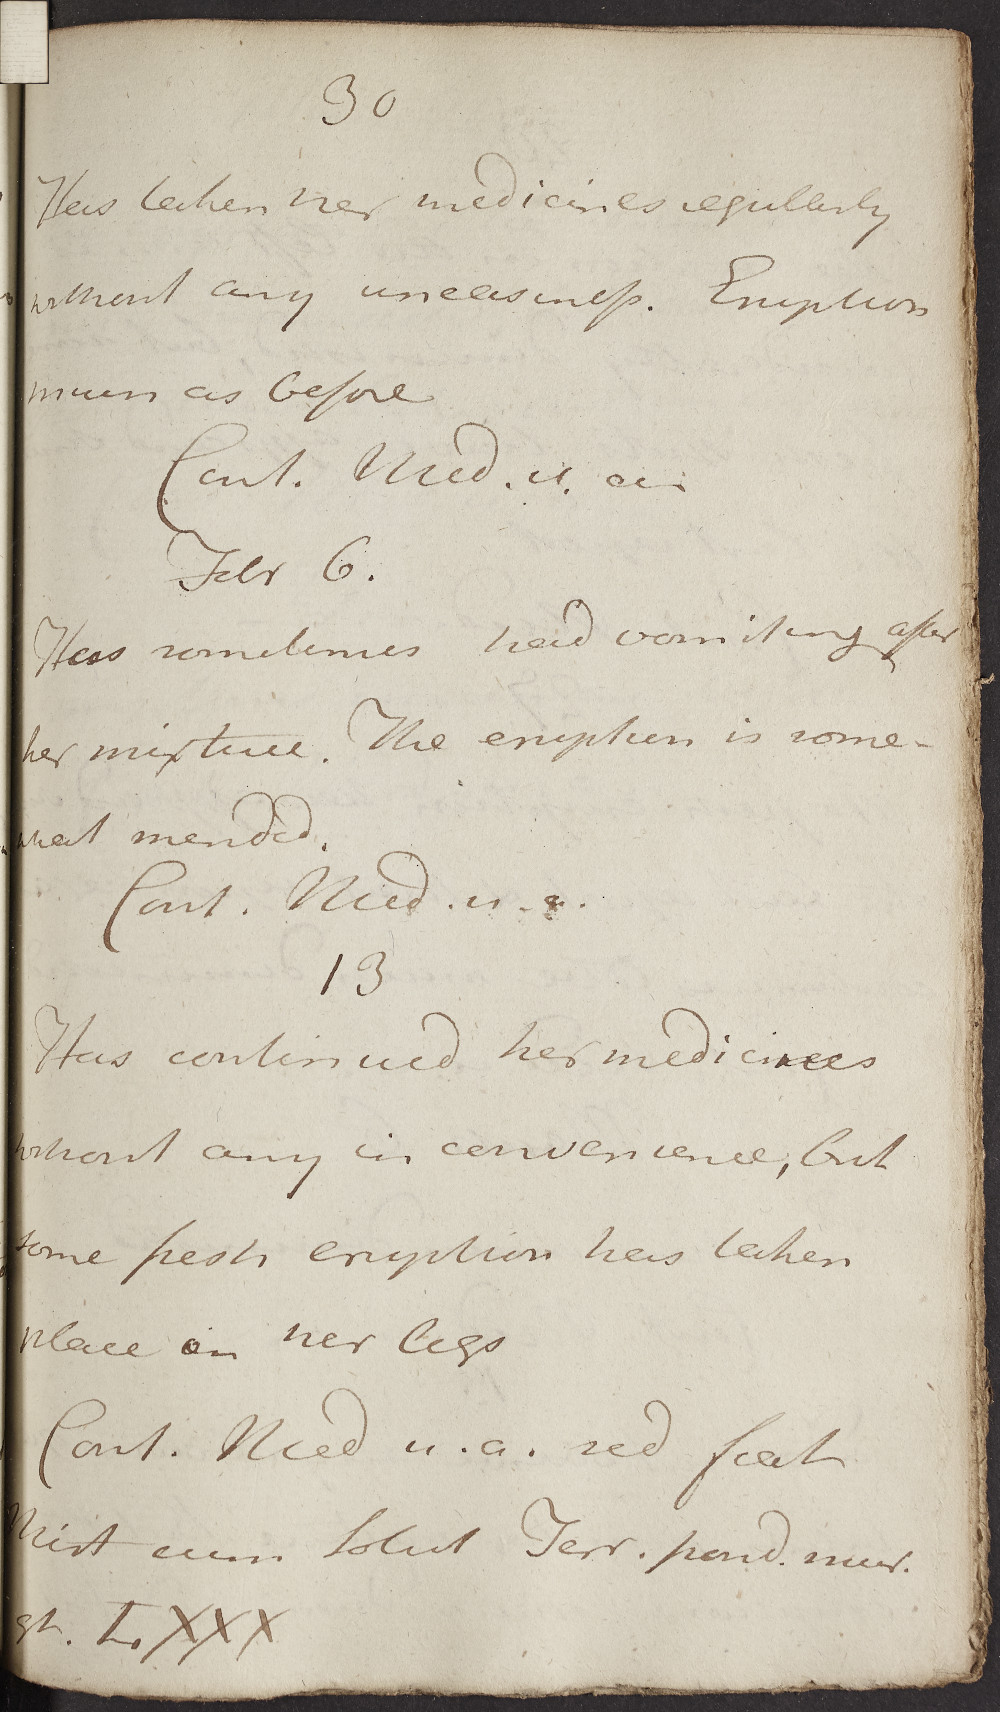 30
Has taken her medicines regullarly
without any uneasiness. Eruption
much as before
Cont. Med. u. a.
Febr 6.
Has sometimes had vomiting after
her mixture. The eruption is some-
what mended.
Cont. Med. u. a.
13
Has continued her medicines
without any inconvenience, but
some fresh eruption has taken
place on her legs
Cont. Med u. a. sed fiat
Mist cum Solut Terr. pond. mur.
gt. LXXX